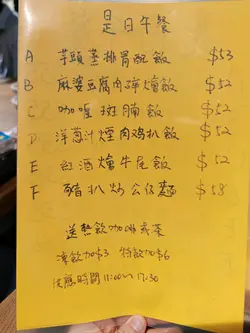 是日午餐
A 芋頭蒸排骨配飯 $53
B 麻婆豆腐肉碎燴飯 $52
C 咖喱斑腩飯 $52
D 洋葱汁煙肉鸡扒飯 $52
E 紅酒燴牛尾飯 $52
F 豬扒炒公仔麵 $58
送熱飲咖啡或茶
凍飲加$3 特飲加$6
供應時間 11:00~17:30